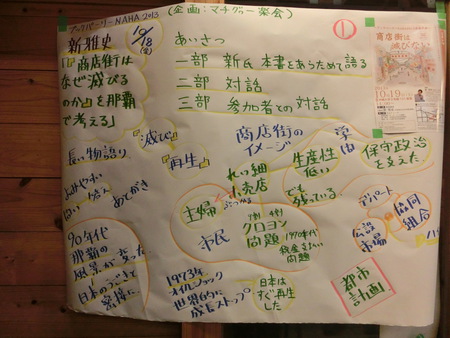 ブックパーリーNAHA 2013
(企画：マチグヮー楽会)
①
新雅史
10/18
(金)
「商店街は
なぜ滅びる
のか」を那覇
で考える」
あいさつ
一部 新氏 本書をあらためて語る
二部 対話
三部 参加者での対話
商店街は
滅びない
10.19
長い物語り
『滅び』
『再生』
商店街の
イメージ
自由
生産性
低い
でも残っている
保守政治
を支えた
よみやすい
あとがき
零細
小売店
主婦
ぶつかる
市民
9割 6割 4割
クロヨン
問題
1970年代
税金を払い
問題
デパート
公設
市場
協同
組合
90年代
那覇の
風景が変った
日本のうごきと
密接に
1973年
オイルショック
世界的に
成長ストップ
日本は
すぐ再生
した
都市
計画